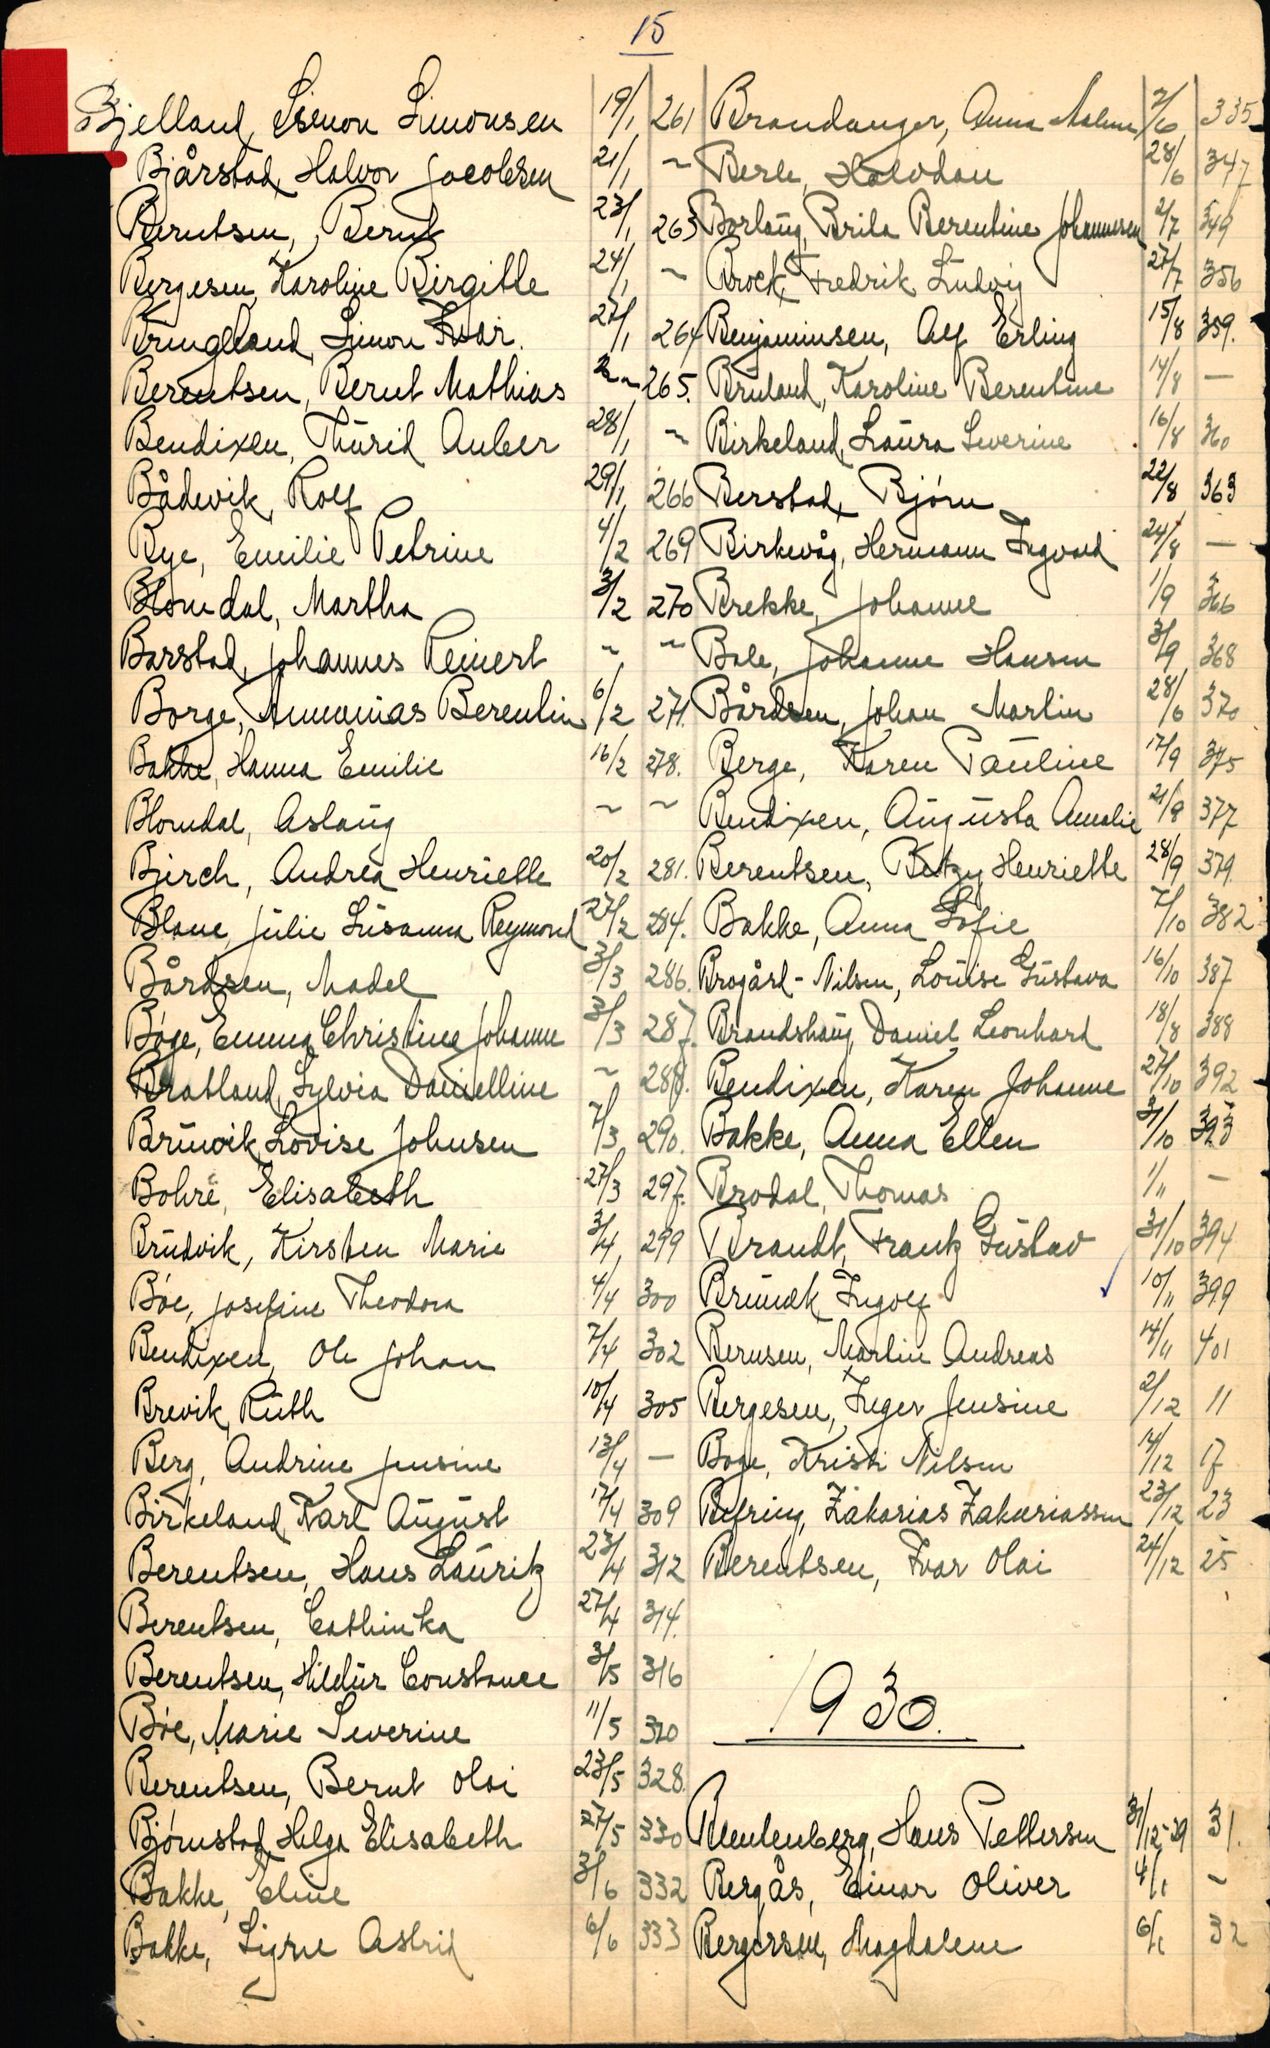 15
Bjelland, Simon Simonsen 19/1 261
Bjårstad, Halvor Jacobsen 21/1 ~
Berntsen, Bernt 23/1 263
Bergesen, Karoline Birgitte 24/1 ~
Bringeland, Simon Ivar. 27/1 264
Berentsen, Bernt Mathias ~ ~ 265.
Bendixen, Thurid Auber 28/1 ~
Bådevik, Rolf 29/1 266
Bye, Emilie Petrine 4/2 269
Blomdal, Martha 3/2 270
Barstad, Johannes Reinert ~ ~
Borge, Annanias Berentin 6/2 271.
Bakke, Hanna Emilie 16/2 278.
Blomdal, Aslaug ~ ~
Bjerch, Andrea Henriette 20/2 281.
Blaue, Julie Susanna Reymond 27/2 284.
Bårdsen, Madel 3/3 286.
Bøge, Emma Christine Johanne 3/3 287.
Bratland, Sylvia Danielline ~ 288.
Brunvik, Lovise Johnsen 7/3 290.
Bohre, Elisabeth 27/3 297.
Brudvik, Kirsten Marie 3/4 299
Bøe, Josefine Theodora 4/4 300
Bendixen, Ole Johan 7/4 302
Brevik, Ruth 10/4 305
Berg, Andrine Jensine 13/4 —
Birkeland, Karl August 17/4 309
Berentsen, Hans Lauritz 23/4 312
Berentsen, Cathinka 27/4 314.
Berentsen, Hildur Constance 3/5 316
Bøe, Marie Severine 11/5 320
Berentsen, Bernt Olai 23/5 328.
Bjørnstad, Helga Elisabeth 27/5 330
Bakke, Eline 3/6 332
Bakke, Signe Astrid 6/6 333
Brandanger, Anna Malene 2/6 335
Berle, Halvdan 28/6 347
Borlaug, Brita Berentine Johannesen 2/7 349
Brock, Fredrik Ludvig 27/7 356
Benjaminsen, Alf Erling 15/8 359.
Bruland, Karoline Berentine 14/8 —
Birkeland, Laura Severine 16/8 360
Berstad, Bjørn 22/8 363
Birkevåg, Hermann Ingvard 24/8 —
Brekke, Johanne 1/9 366
Bale, Johanne Hansen 3/9 368
Bårdsen, Johan Martin 28/6 370
Berge, Karen Pauline 17/9 375
Bendixen, Augusta Amalie 21/9 377
Berentsen, Betzy Henriette 28/9 379
Bakke, Anna Sofie 7/10 382
Brogård-Nilsen, Louise Gustava 16/10 387
Brandshaug, Daniel Leonhard 18/8 388
Bendixen, Karen Johanne 27/10 392
Bakke, Anna Ellen 31/10 393
Brodal, Thomas 1/11 —
Brandt, Frantz Gustav 31/10 394
Brundt, Ingolf ✓ 10/11 399
Bernsen, Martin Andreas 14/11 401
Bergesen, Inger Jensine 2/12 11
Boge, Kristi Nilsen 14/12 17
Befring, Zakarias Zakariassen 23/12 23
Berentsen, Ivar Olai 24/12 25
1930.
Blentenberg, Hans Pettersen 31/12-29 31.
Bergås, Einar Oliver 4/1 ~
Bergersen, Magdalene 6/1 32